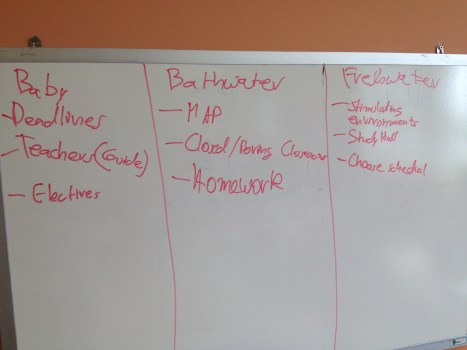 Baby
-Deadlines
-Teacher (Guide)
- Electives
Bathwater
- MAP
- Closed/Boring Classrooms
- Homework
Freshwater
- Stimulating
environments
- Study Hall
- Choose schedual